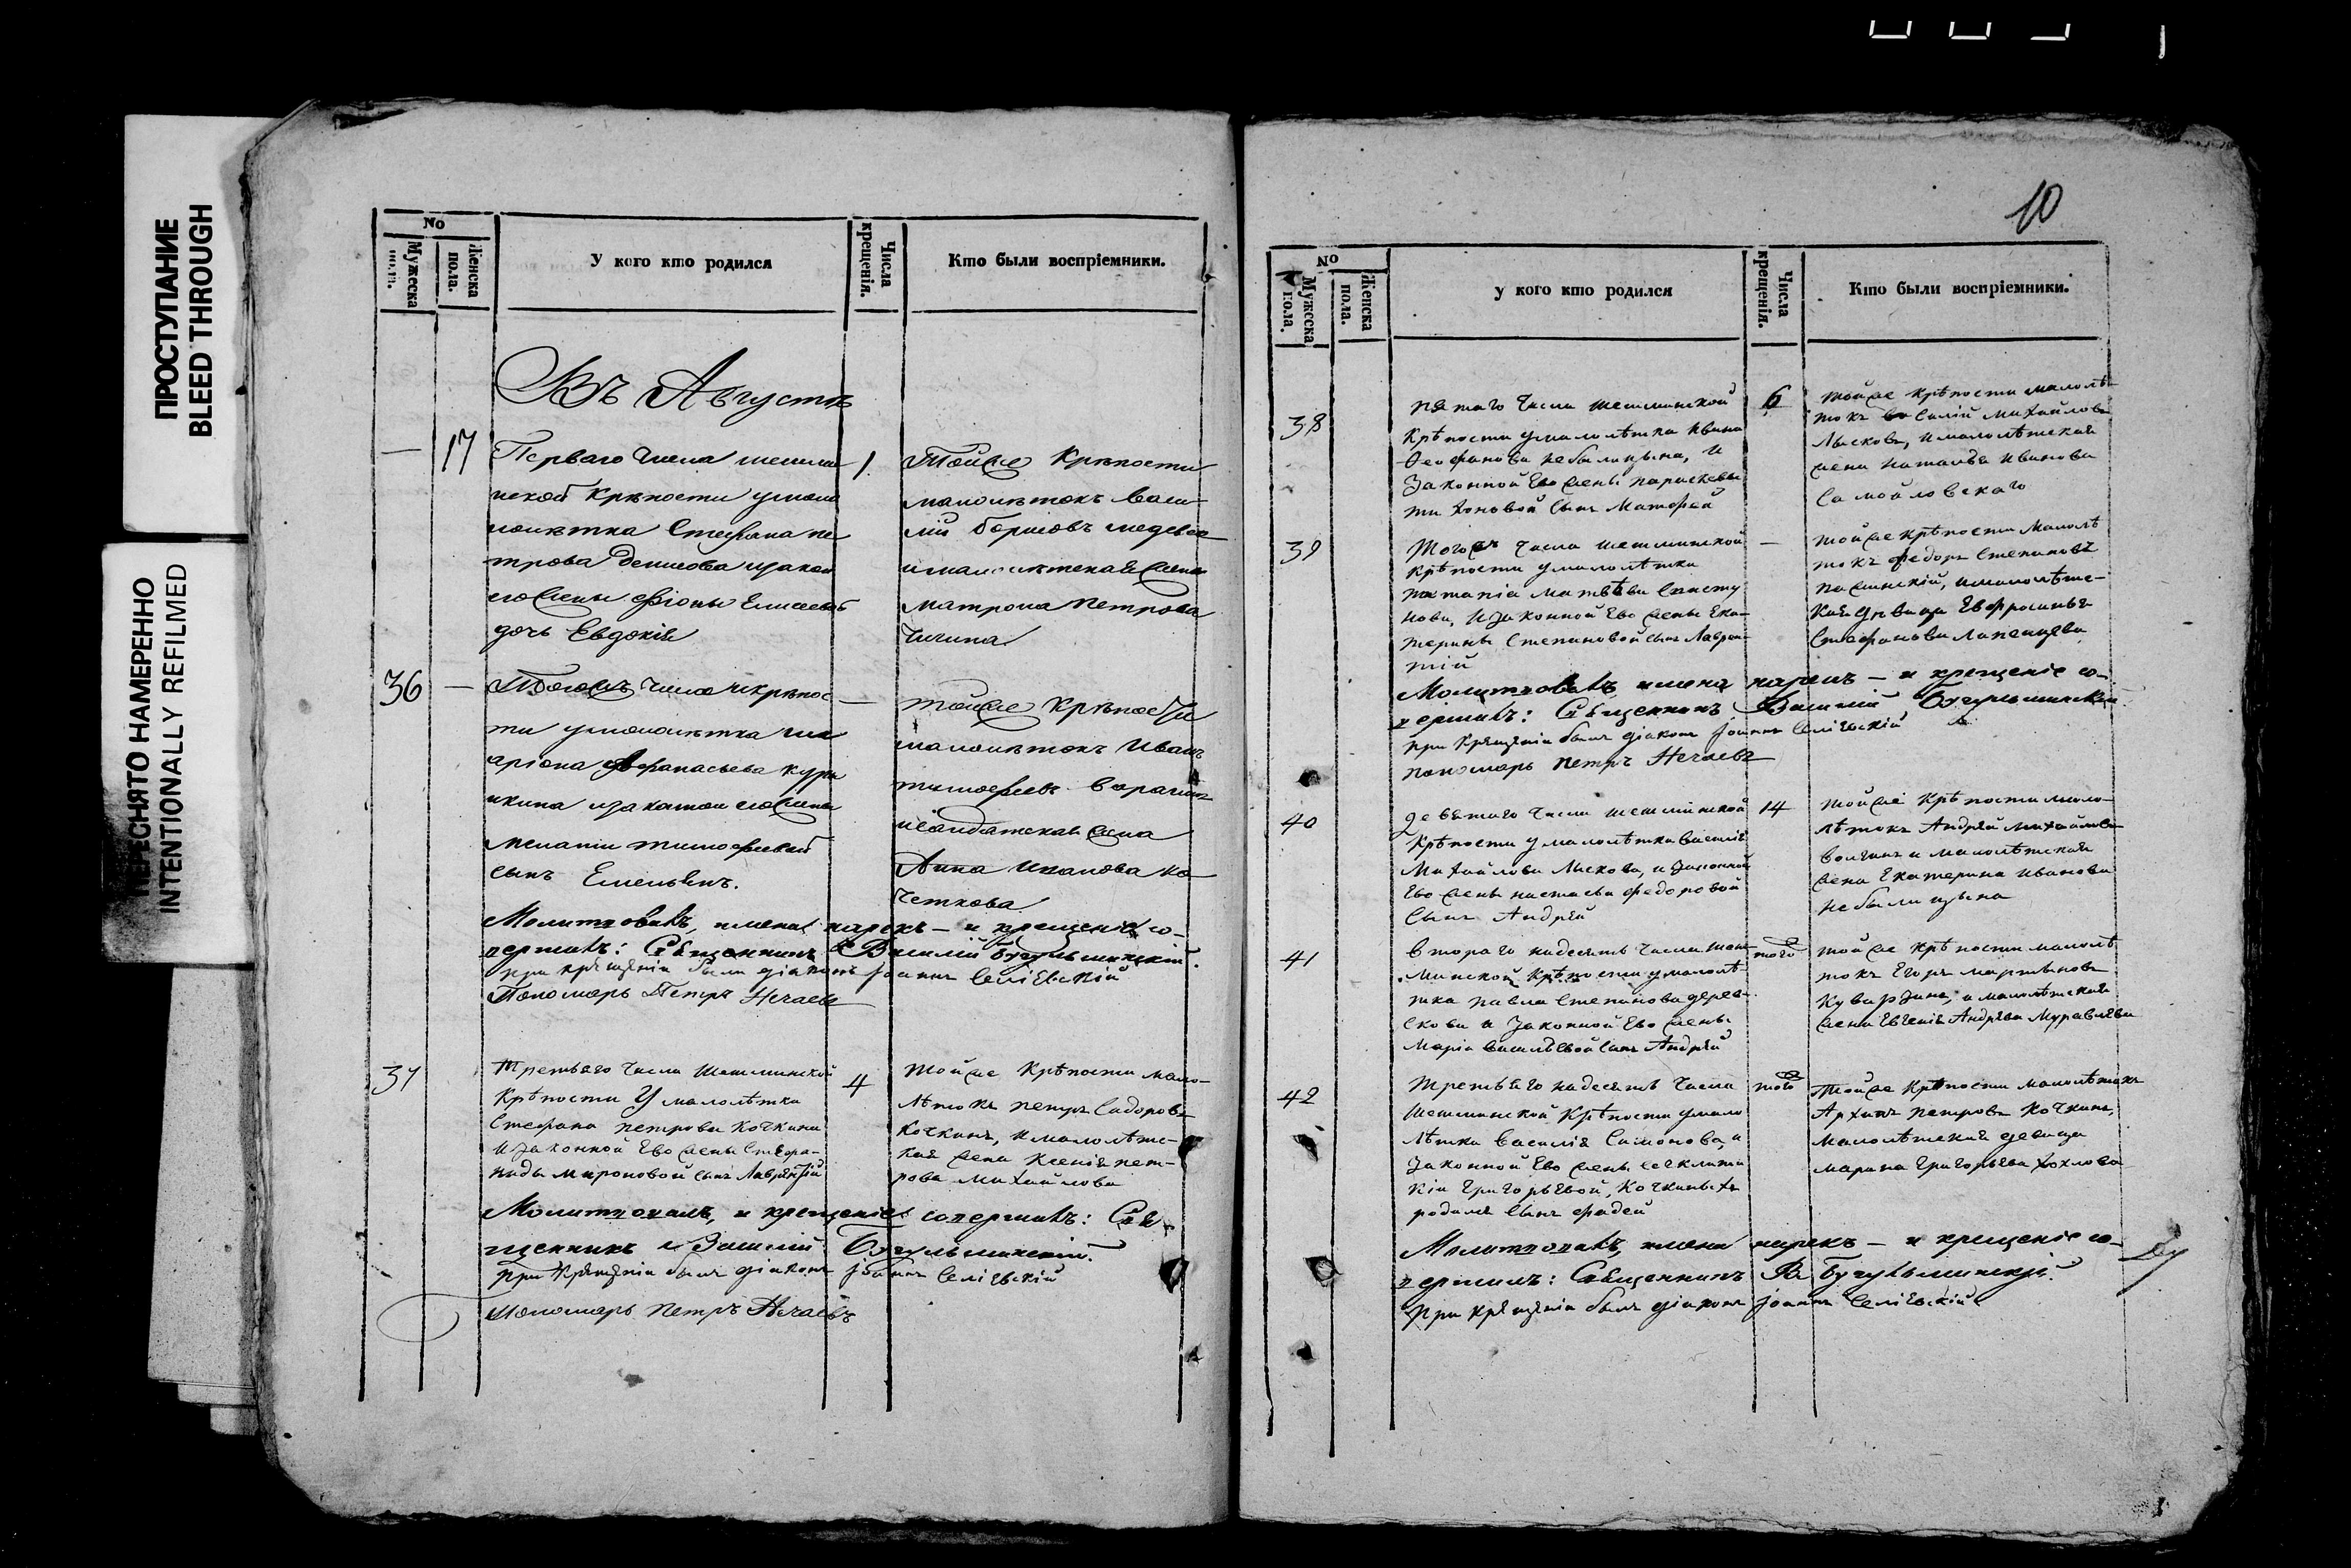 ПРОСТУПАНИЕ
BLEED THROUGH
ПЕРЕСНЯТО НАМЕРЕННО
INTENTIONALLY REFILMED
No
Мужеска пола.
Женска пола.
У кого кто родился
Числа крещенія.
Кто были воспріемники.
Въ Августѣ
— 17
Перваго числа шешми
нской крѣпости умало
лѣтка Стефана пе
трова Денисова изакон
дочь Евдокія
1.
Тойже Крѣпости
малолѣтокъ Васи
лій Борисовъ
ималолѣтская жена
матрона петрова
36 —
Тогожъ числа икрѣпос
ти умалолѣтка ила
аріона Афанасьева
меланіи тимофеевой
сынъ Емельянъ.
—
тойже Крѣпости
малолѣтокъ Иванъ
тимофеевъ
исолдатская жена
Анна Иванова ко
четкова
Молитвовалъ, имена нарекъ — и крещеніе со-
вершалъ: Священникъ Василій Бугульминскій.
при крещеніи были діаконъ Іоаннъ Селіевскій
Пономарь Петръ Нечаевъ
37
Третьяго числа Шешминской
Крѣпости У малолѣтка
Стефана петрова Кочкина
изаконной Ево жены Степа-
ниды мироновой сынъ Лаврентій
4
Тойже Крѣпости мало-
лѣтокъ петръ Сидоровъ
Кочкинъ, ималолѣтс-
кая жена Ксенія пет-
рова михайлова
Молитвовалъ, и крещеніе совершалъ: Свя-
щенникъ Василій Бугульминскій.
при крещеніи былъ діаконъ Іоаннъ Селіевскій
пономарь петръ Нечаевъ
10
No
Мужеска пола.
Женска пола.
у кого кто родился
Числа крещенія.
Кто были воспріемники.
38
пятаго числа шешминской
Крѣпости умалолѣтка Ивана
Феофанова небылицына, И
Законной Ево жены параскевы
тихоновой сынъ Матфей
6
тойже крѣпости малолѣ-
токъ василій михайловъ
Лысковъ, ималолѣтская
жена наталья иванова
Самойловскаго
39
Тогожъ числа шешминской
крѣпости умалолѣтка
нова, Изаконной Ево жены Ека-
терины Степановой сынъ Лаврен-
тій
—
тойже крѣпости Малолѣ
токъ федоръ Степановъ
ималолѣтс-
кая дѣвица Евфросинья
Стефанова
Молитвовалъ, имена нарекъ — и крещеніе со-
вершалъ: Священникъ Василій Бугульминскій
при крещеніи былъ діаконъ Іоаннъ Селіевскій
пономарь петръ Нечаевъ
40
девятаго числа шешминской
Крѣпости умалолѣтка василія
Михайлова Лыскова, и Законной
Ево жены настасьи федоровой
Сынъ Андрей
14
тойже Крѣпости мало-
лѣтокъ Андрей михайловъ
волгинъ и малолѣтская
жена Екатерина иванова
небылицына
41
втораго надесять числа шеш-
минской Крѣпости умалолѣ-
тка павла Степанова дерев-
скова и Законной Ево жены
Маріи васильевой сынъ Андрей
того
тойже крѣпости малолѣ
токъ Егоръ мартыновъ
малолѣтская
жена Евгенія Андреева Муравлева
42
третьяго надесять числа
шешминской Крѣпости умало
лѣтка Василія Симонова, и
Законной Ево жены
Григорьевой, Кочкиныхъ
родился сынъ фадей
того
Тойже Крѣпости малолѣтокъ
Архипъ петровъ Кочкинъ,
малолѣтская девица
марина Григорьева хохлова
Молитвовалъ, имена нарекъ — и крещеніе со-
вершилъ: Священникъ Ва Бугульминскій.
при крещеніи былъ діаконъ Іоаннъ Селіевскій